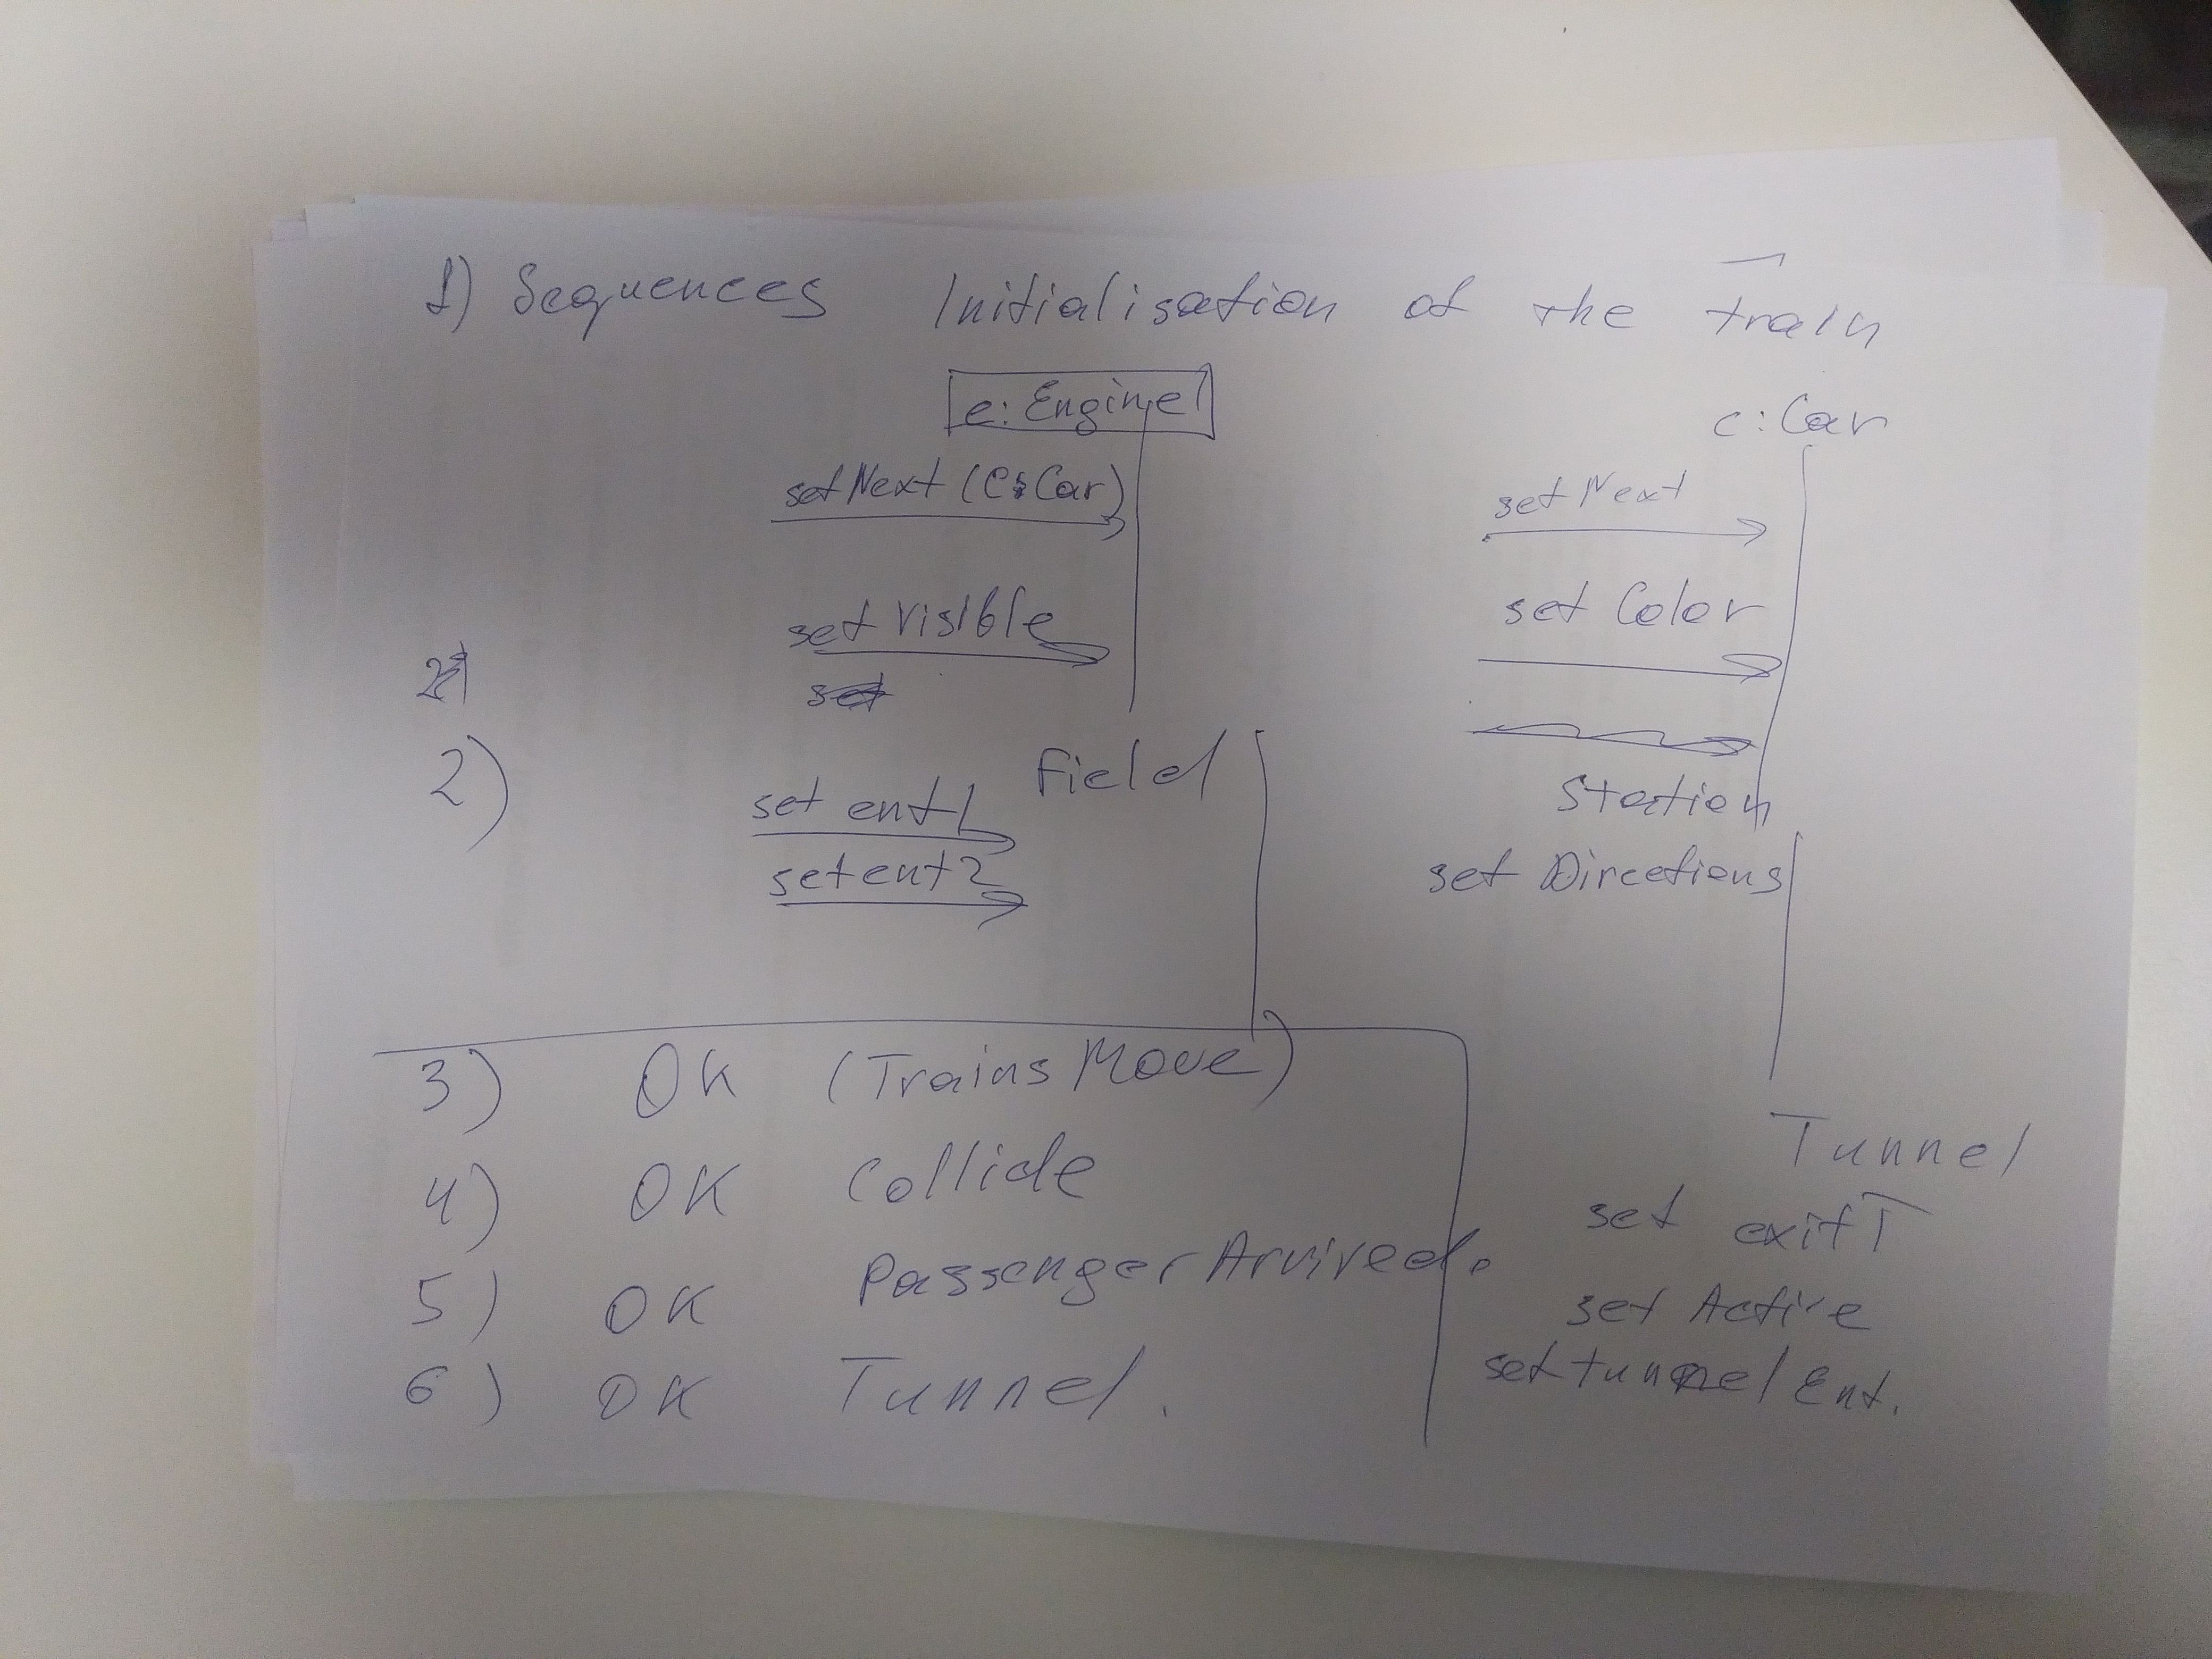 1) Sequences Initialisation of the train
e: Engine
c: Car
setNext (c:Car)
setNext
set Visible
set Color
set
2)
Field
set ent1
Station
set ent2
set Directions
3) OK (TrainsMove)
4) OK Collide
5) OK PassengerArrived.
6) OK Tunnel.
Tunnel
set exitT
set Active
set tunnel Ent.